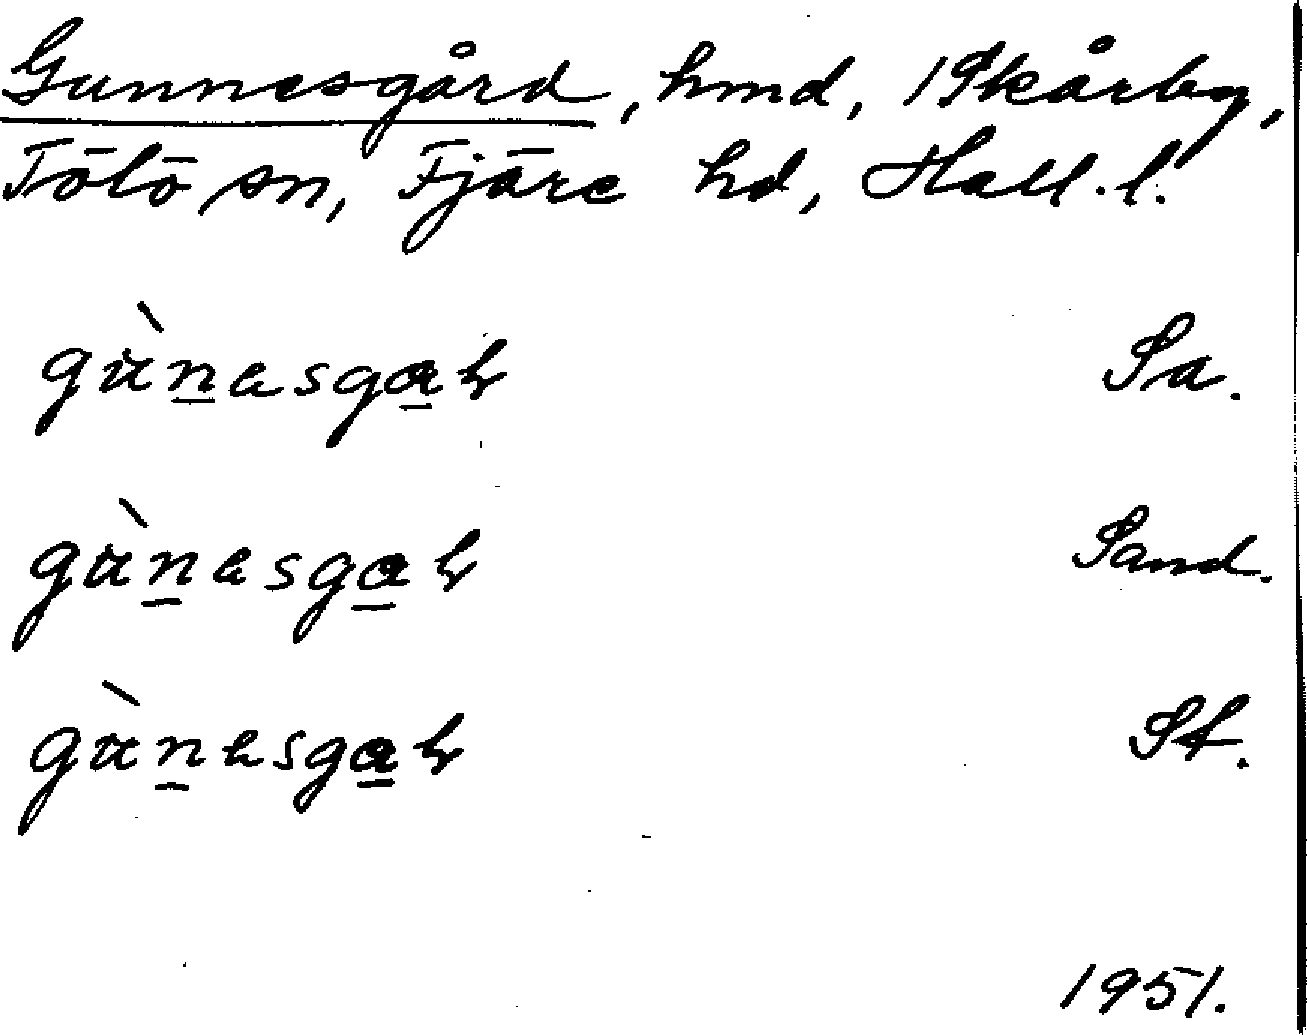 Gunnesgård, hmd, 1 Skårby,
Tölö sn, Fjäre hd, Hall. l.
gùnasgaɂ Sa.
gùnasgaɂ Sand.
gùnasgaɂ St.
1951.